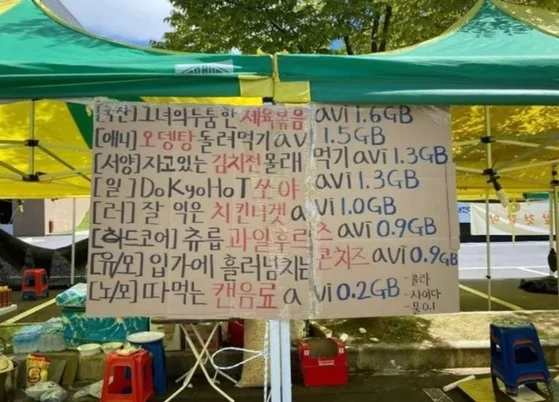 [국산]그녀의두툼한 제육볶음 avi 1.6GB
[애니]오뎅탕돌려먹기avi 1.5GB
[서양]자고있는 김치전몰래 먹기 avi 1.3GB
[일]DoKyoHoT쏘야 avi 1.3GB
[러]잘 익은 치킨너겟 avi 1.0GB
[하드코어]츄릅 과일후르츠 avi 0.9GB
[유/모]입가에 흘러넘치는 콘치즈 avi 0.9GB
[노/모]따먹는 캔음료 avi 0.2GB
-콜라
-사이다
-물0.1